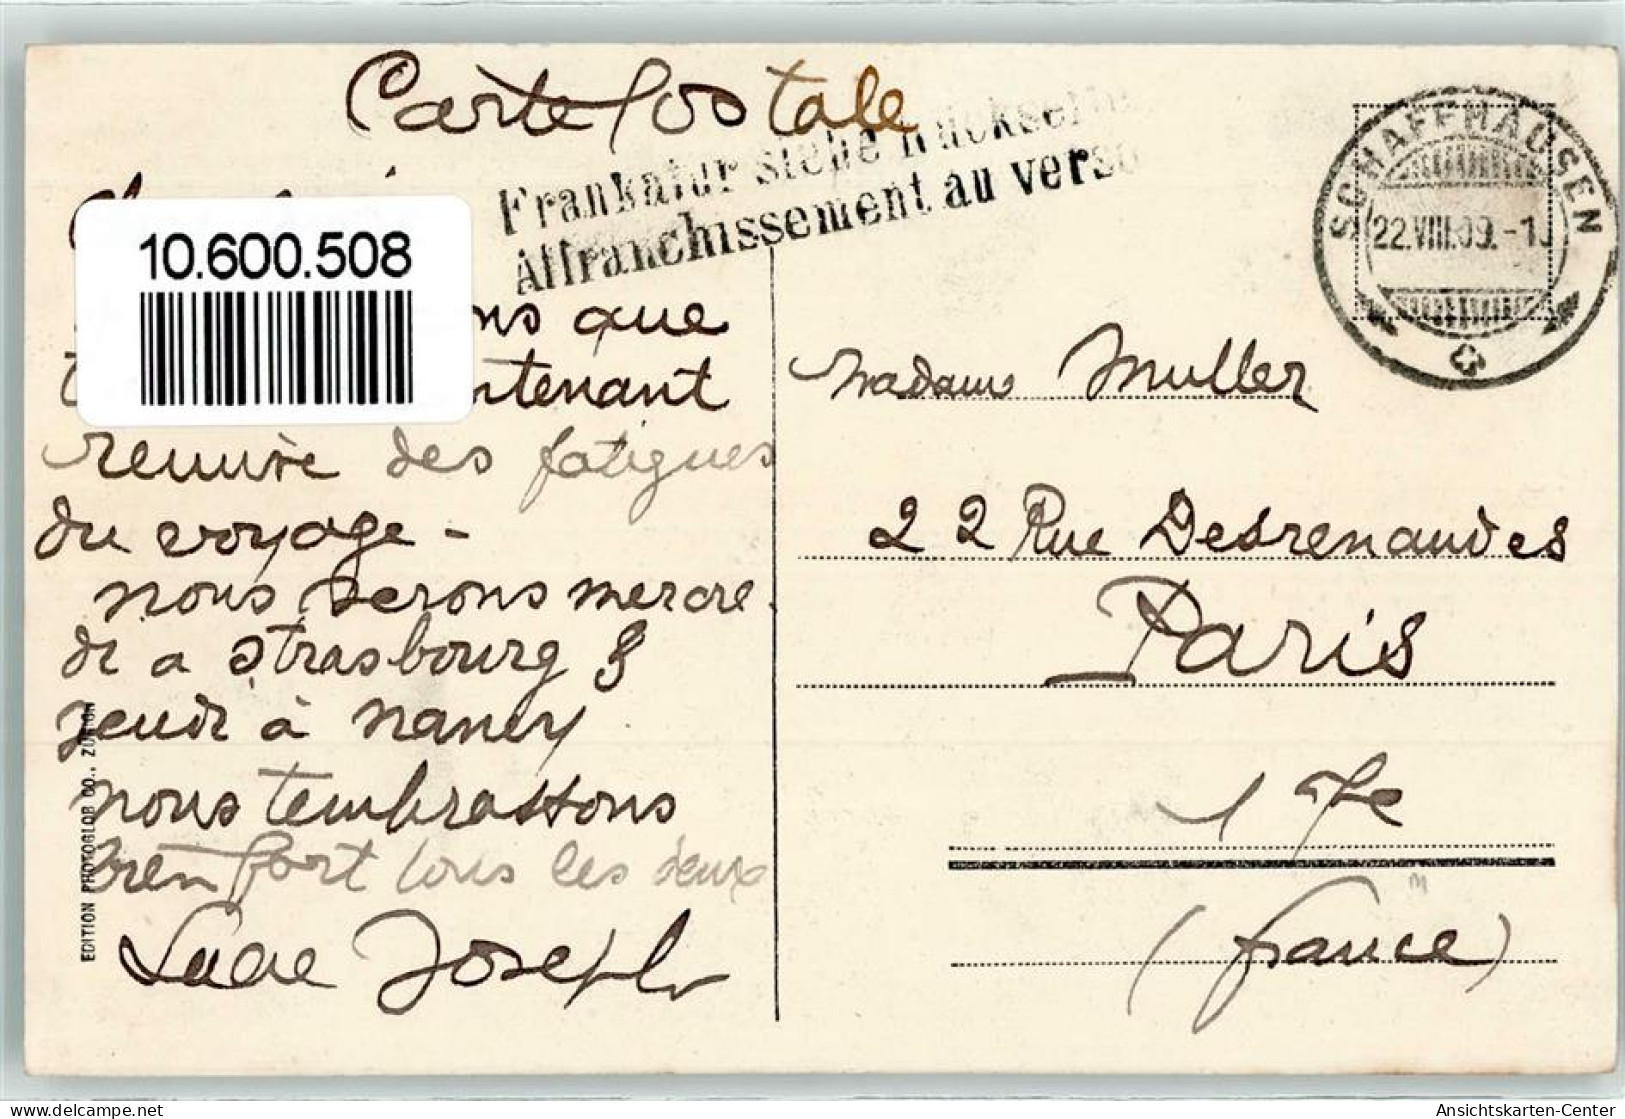 Carte Postale
Frankatur siehe Rückseite
Affranchissement au verso
SCHAFFHAUSEN
22.VIII.09.-1
10.600.508
ns que
ntenant
remise des fatigues
du voyage -
nous serons mercre
di a Strasbourg &
jeudi à Nancy
nous t'embrassons
bien fort tous les deux
Joseph
Madame Muller
22 Rue Desrenaudes
Paris
17e
(France)
EDITION PHOTOGLOB CO., ZÜRICH
delcampe.net
Ansichtskarten-Center